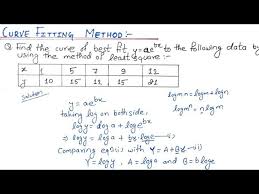 CURVE FITTING METHOD:-
Q. Find the curve of best fit y=ae^bx to the following data by
using the method of least square:
x 1 5 7 9 12
y 10 15 12 15 21
Solution:
y = ae^bx
taking log on both side,
logy = log a + log e^bx
⇒ logy = log a + bx·loge —(i)
Comparing eqⁿ(i) with Y = A+BX —(ii)
Y = logy, A = loga and B = b loge
logmn = logm + logn
logmⁿ = n logm